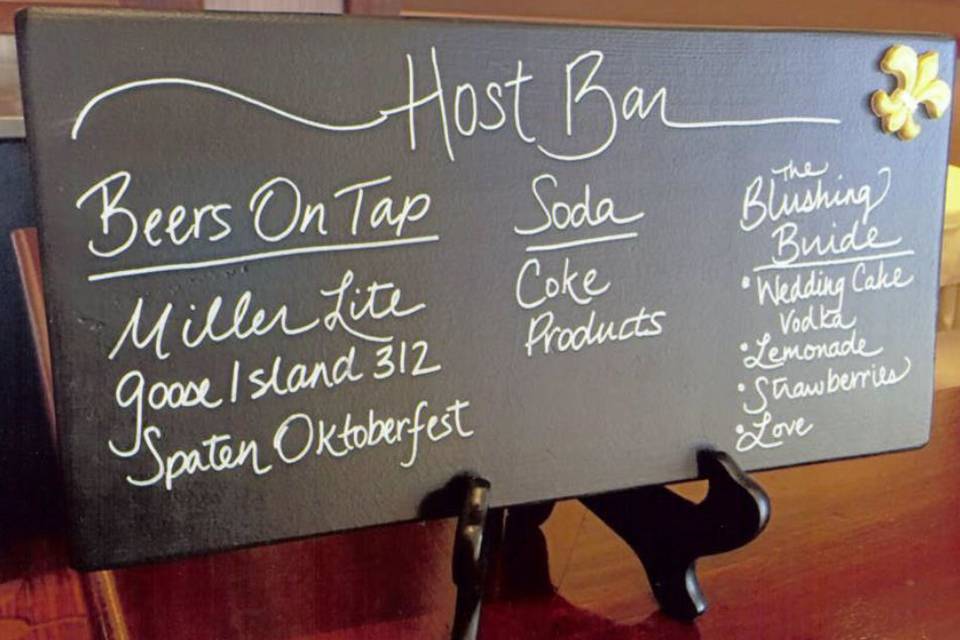 Host Bar
Beers On Tap
Miller Lite
Goose Island 312
Spaten Oktoberfest
Soda
Coke
Products
The
Blushing
Bride
• Wedding Cake
Vodka
• Lemonade
• Strawberries
• Love